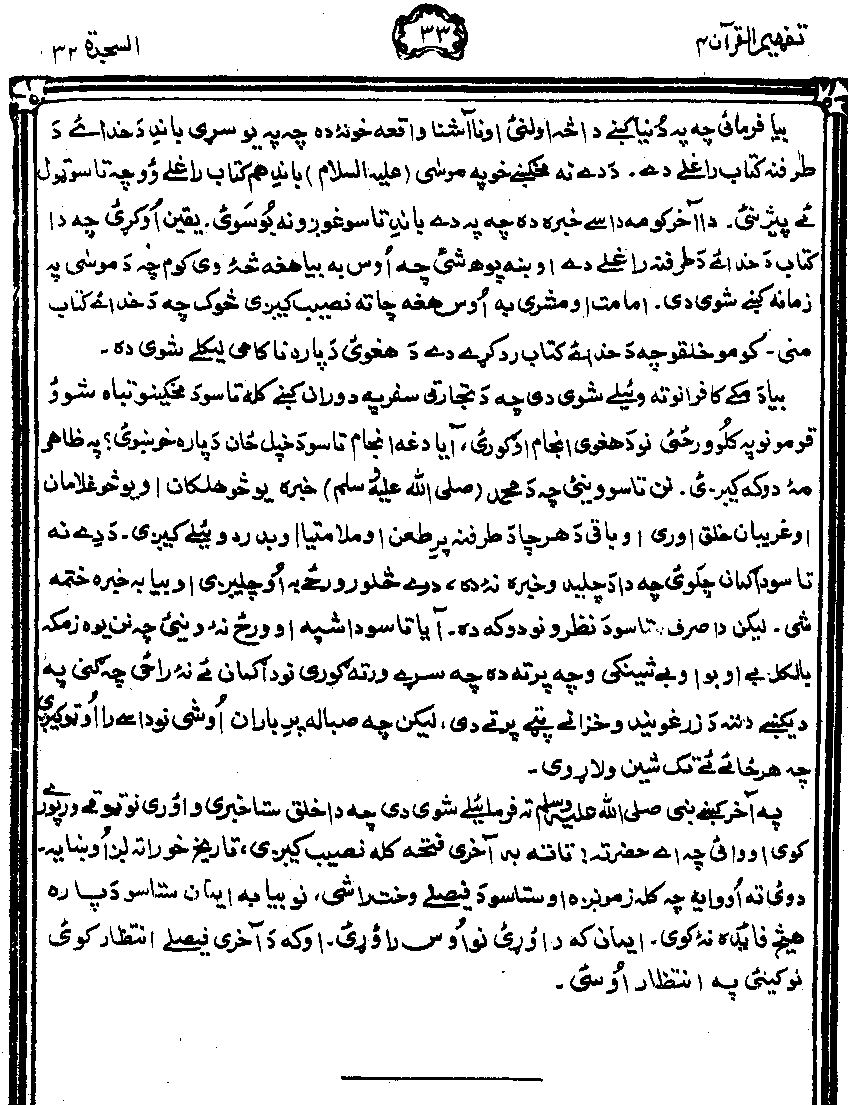 تفهیم القرآن ۴
۳۳
السجدة ۳۲
بیا فرمائی چه په دُنیا کښے دا څه اولنئ اونا آشنا واقعه خو نهٔ ده چه په یو سړی باندِ دَ خدائے دَ
طرفنه کتاب راغلے دے. دَ دے نه مخکښے خو په موسٰی (علیه السلام) باندِ هم کتاب راغلے وُو چه تاسو ټول
ئے پیژنئ. دا آخر کومه داسے خبره ده چه په دے باندِ تاسو غوږونه بوُسوئ. یقین اُوکړئ چه دا
کتاب دَ خدائے دَ طرفنه راغلے دے او ښه پوهه شئ چه اُوس به بیا هغه څهٔ وی کوم چه دَ موسٰی په
زمانه کښے شوی دی. امامت او مشری به اُوس هغه چا ته نصیب کیږی څوک چه دَ خدائے کتاب
منی. کومو خلقو چه دَ خدائے کتاب رد کړے دے دَ هغوئ دَپاره ناکامی لیکلے شوی ده.
بیا دَ مکے کافرانو ته وئیلے شوی دی چه دَ تجارتی سفر په دوران کښے کله تاسو دَ مخکینو تباه شوُ
قومونو په کلُو ورځئ نو دَ هغوی انجام اُوگورئ، آیا دغه انجام تاسو دَ خپل ځان دَپاره خوښوئ؟ په ظاهر
مهٔ دوکه کیږئ. نن تاسو وینئ چه دَ محمد (صلی الله علیه وسلم) خبره یو څو هلکان او یو څو غلامان
او غریبان خلق اوری او باقی دَ هر چا دَ طرفنه پرِ طعن او ملامتیا او بد رد وئیلے کیږی. دَ دِے نه
تاسو دا گمان جوړوئ چه دا دَ چلیدو خبره نهٔ ده، درے څلور ورځے به اُوچلیږی او بیا به خبره ختمه
شی. لیکن دا صرف تاسو دَ نظرونو دوکه ده. آیا تاسو دا شپه او ورځ نهٔ وینئ چه نن یوه زمکه
بالکل بے اوبو او بے شینکی وچه پرته ده چه سړے ورته گوری نو دا گمان ئے نهٔ راځی چه گنی په
دیکښے دننه دَ زرغونیدو خزانے پټے پرتے دی، لیکن چه صباله پرِ باران اُوشی نو داسے را اُوټوکیږی
چه هر ځائے ئے تک شین ولاړ وی.
په آخر کښے نبی صلی الله علیه وسلم ته فرمائیلے شوی دی چه دا خلق ستا خبری واوری نو ټوقے ورپورے
کوی او وائی چه اے حضرته! تا ته به آخری فتحه کله نصیب کیږی، تاریخ خو راته لږ اُوښایه.
دوئ ته اُووایه چه کله زمونږه او ستاسو دَ فیصلے وخت راشی، نو بیا به ایمان ستاسو دَپاره
هیڅ فایده نهٔ کوی. ایمان که راوړئ نو اُوس راوُړئ. او که دَ آخری فیصلے انتظار کوئی
نو کینئ په انتظار اُوسئ.